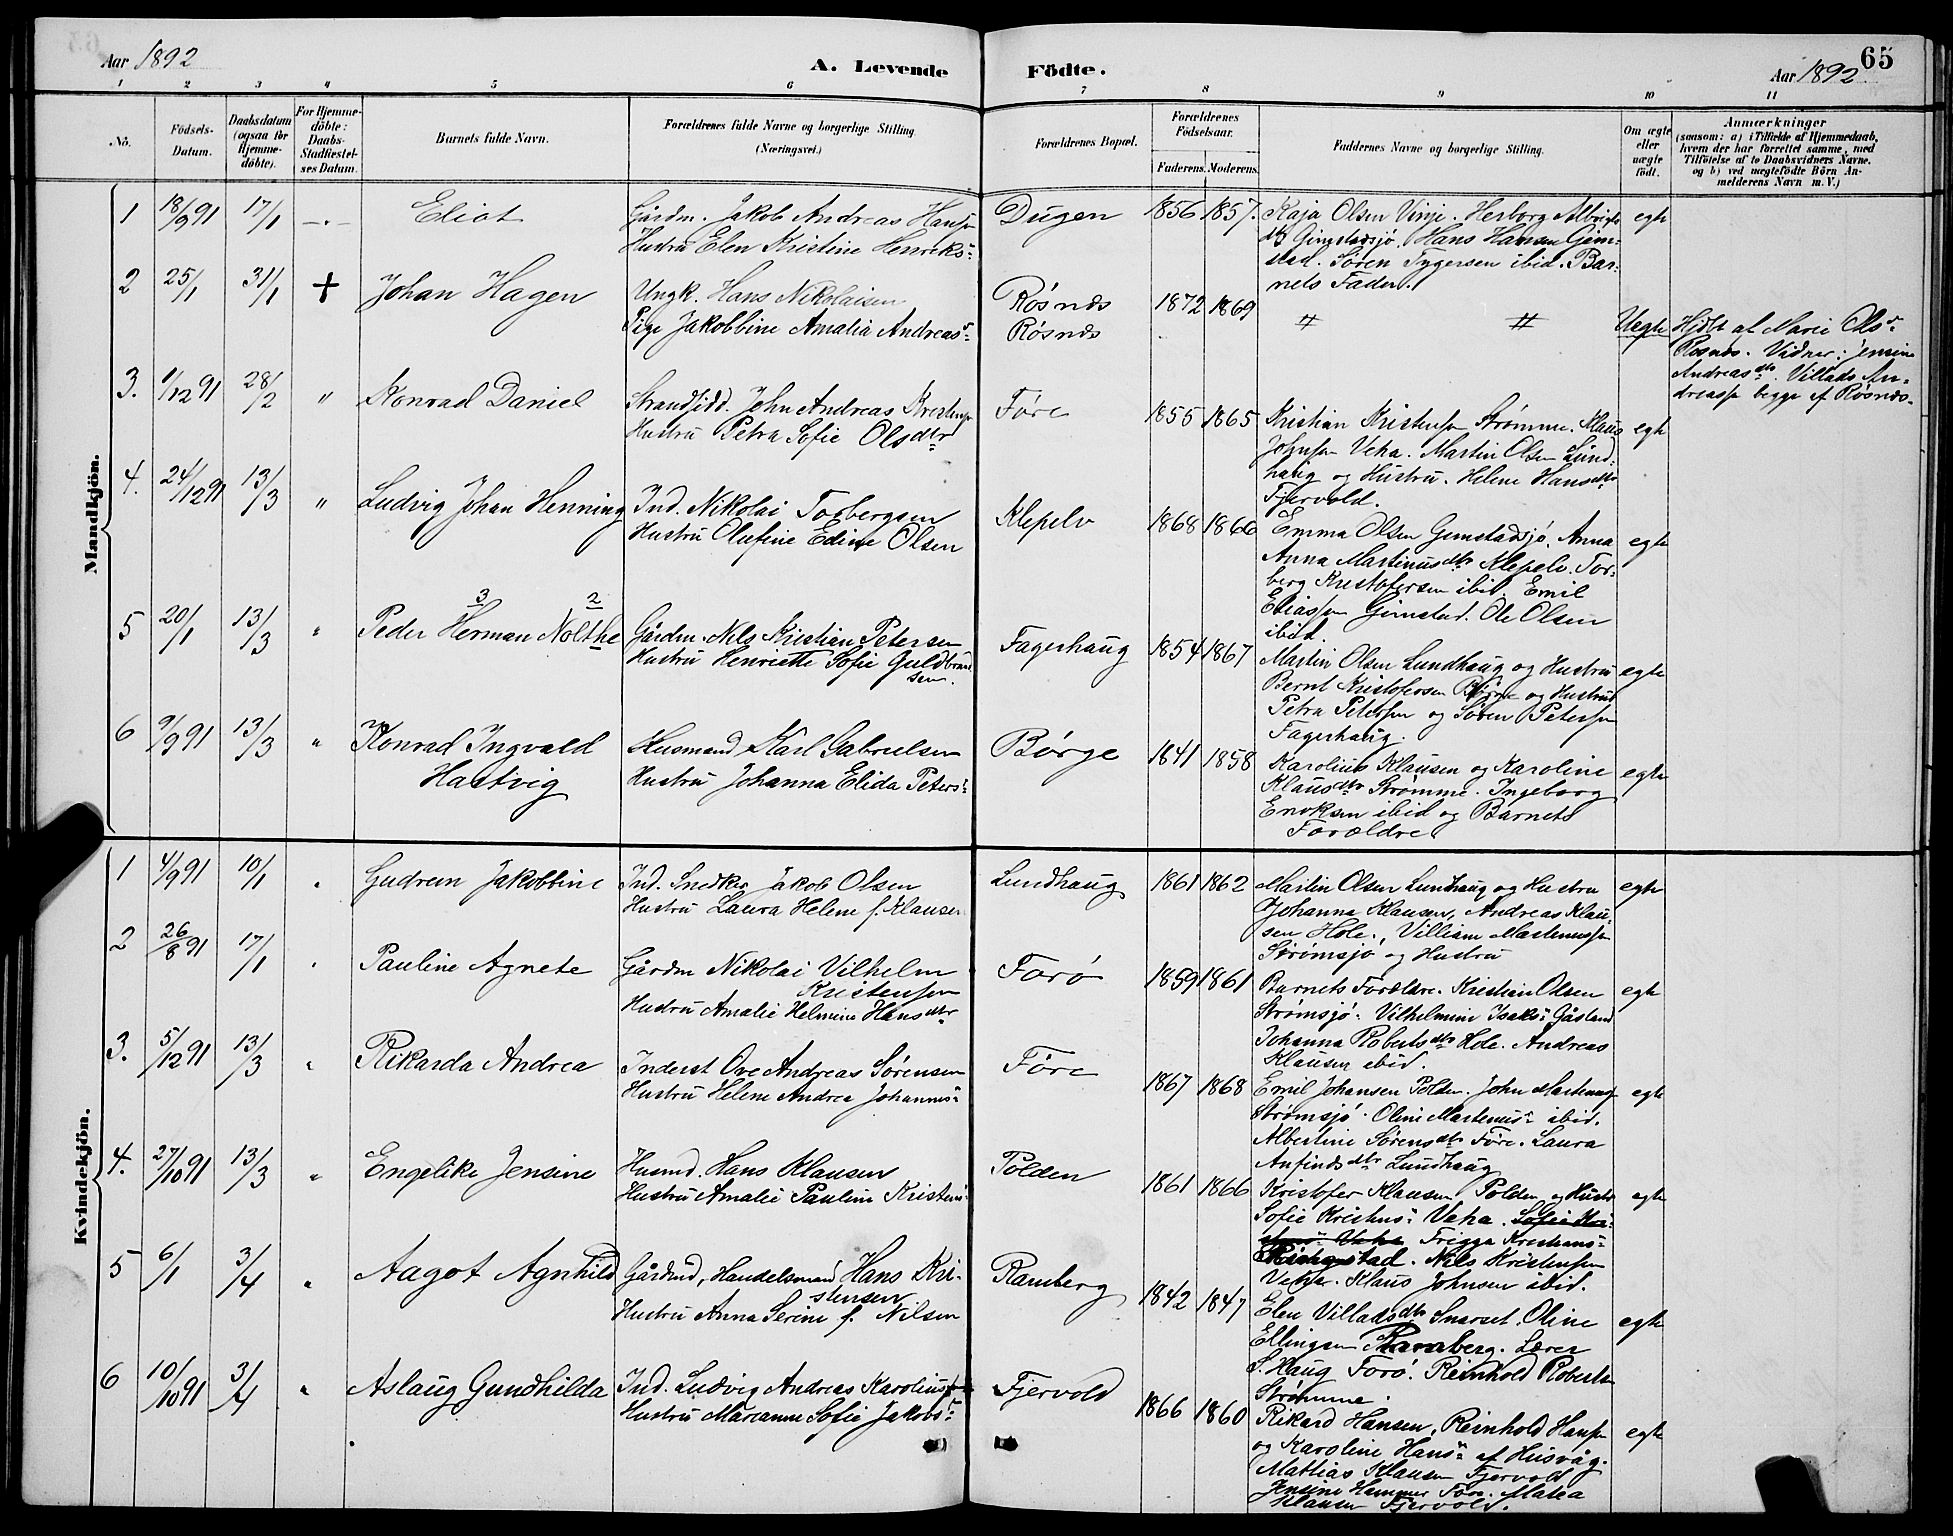 65
Aar 1892
A. Levende
Födte.
Aar 1892
1 2 3 4 5 6 7 8 9 10 11
No.
Födsels-
Datum.
Daabsdatum
(ogsaa for
Hjemme-
döbte).
For Hjemme-
döbte:
Daabs-
Stadfæstel-
ses Datum.
Barnets fulde Navn.
Forældrenes fulde Navne og borgerlige Stilling.
(Næringsvei.)
Forældrenes Bopæl.
Forældrenes
Födselsaar.
Faderens. Moderens.
Faddernes Navne og borgerlige Stilling.
Om ægte
eller
uægte
födt.
Anmærkninger
(saasom: a) i Tilfælde af Hjemmedaab,
hvem der har forrettet samme, med
Tilföielse af to Daabsvidners Navne.
og b) ved uægtefödte Börn An-
melderens Navn m. V.)
Mandkjön.
1 18/9 91 17/1 -"- Eliot
Gårdm. Jakob Andreas Hansen
Hustru Elen Kristine Henriks"
Dugen 1856 1857.
Kaja Olsen Vinje. Herborg Albrigts
dtr Gimstadsjø. Hans Hansen Gim-
stad. Søren Tygersen ibid. Bar-
nets Fader.
egte
2 25/1 31/1 + Johan Hagen
Ungk. Hans Nikolaisen
Pige Jakobbine Amalia Andreas"
Røsnæs
Røsnæs
1872 1869
" "
Uegte
Hjdbt af Marie Ols"
Røsnæs. Vidner: Jensine
Andreasdtr. Villads An-
dreassen begge af Røsnæs.
3. 1/12 91 28/2 " Konrad Daniel
Strandsidd. John Andreas Kristensen
Hustru Petra Sofie Olsdtr
Føre 1855 1865
Kristian Kristensen Strømme. Klaus
Johnsen Veha. Martin Olsen Lund-
haug og Hustru. Helene Hansdtr
Fjervold.
egte
4. 24/12 91 13/3 " Ludvig Johan Henning
Ind. Nikolai Torbergsen
Hustru Olufine Edine Olsen
Klepelv 1868 1866
Emma Olsen Gimstadsjø. Anna
Anna Martinusdtr Klepelv. Tor-
berg Kristofersen ibid. Emil
Eliassen Gimstad. Ole Olsen
ibid.
egte
5 20/1 13/3 " 3 2
Peder Herman Nolthe
Gårdm. Nils Kristian Petersen
Hustru Henriette Sofie Guldbrand
sen.
Fagerhaug 1854 1867
Martin Olsen Lundhaug og Hustru
Bernt Kristofersen Børge og Hustru
Petra Petersen og Søren Petersen
Fagerhaug.
egte
6 9/9 91 13/3 " Konrad Ingvald
Hartvig
Husmand Karl Gabrielsen
Hustru Johanna Elida Peters"
Børge 1841 1858
Karolius Klausen og Karoline
Klausdtr Strømme. Ingeborg
Enoksen ibid og Barnets
Forældre
egte
Kvindekjön.
1 4/9 91 10/1 " Gudrun Jakobbine
Ind. Snedker Jakob Olsen
Hustru Laura Helene f. Klausen
Lundhaug 1861 1862
Martin Olsen Lundhaug og Hustru
Johanna Klausen, Andreas Klau-
sen Hole., Villiam Martenussen
Strømsjø og Hustru
egte
2 26/8 91 17/1 " Pauline Agnete
Gårdm Nikolai Vilhelm
Kristensen
Hustru Amalie Helmine Hansdtr
Forø 1859 1861
Barnets Forældre. Kristian Olsen
Strømsjø. Vilhelmine Isaks" Gåsland
Johanna Robertsdtr Hole. Andreas
Klausen ibid.
egte
3. 5/12 91 13/3 " Rikarda Andrea
Inderst Ove Andreas Sørensen
Hustru Helene Andrea Johannes"
Føre 1867 1868
Emil Johansen Polden. John Martenussen
Strømsjø. Oline Martenus" ibid.
Albertine Sørensdtr Føre. Laura
Anfindsdtr Lundhaug
egte
4. 27/10 91 13/3 " Engelike Jensine
Husmd. Hans Klausen
Hustru Amalie Pauline Kristens"
Polden 1861 1866
Kristofer Klausen Polden og Hustr
Sofie Kristens" Veha. Sofie Kri-
stens" Veha Frigga Kristians"
Ringstad. Nils Kristensen
Veha. Klaus Johnsen ibid.
egte
5 6/1 3/4 " Aagot Agnhild
Gårdmd, Handelsmand Hans Kri-
stensen
Hustru Anna Serine f. Nilsen
Ramberg 1842 1847
Elen Villadsdtr Snarset. Oline
Ellingsen Ramberg. Lærer
S. Haug Forø. Reinhold Roberts
Strømme.
egte
6 10/10 91 3/4 " Aslaug Gundhilda
Ind. Ludvig Andreas Karoliussen
Hustru Marianne Sofie Jakobs"
Fjervold 1866 1860
Rikard Hansen, Reinhold Hansen
og Karoline Hans" af Husvåg.
Mattias Klausen Fjervold
Jensine Hammer Føre. Matea
Klausen Fjervold.
egte